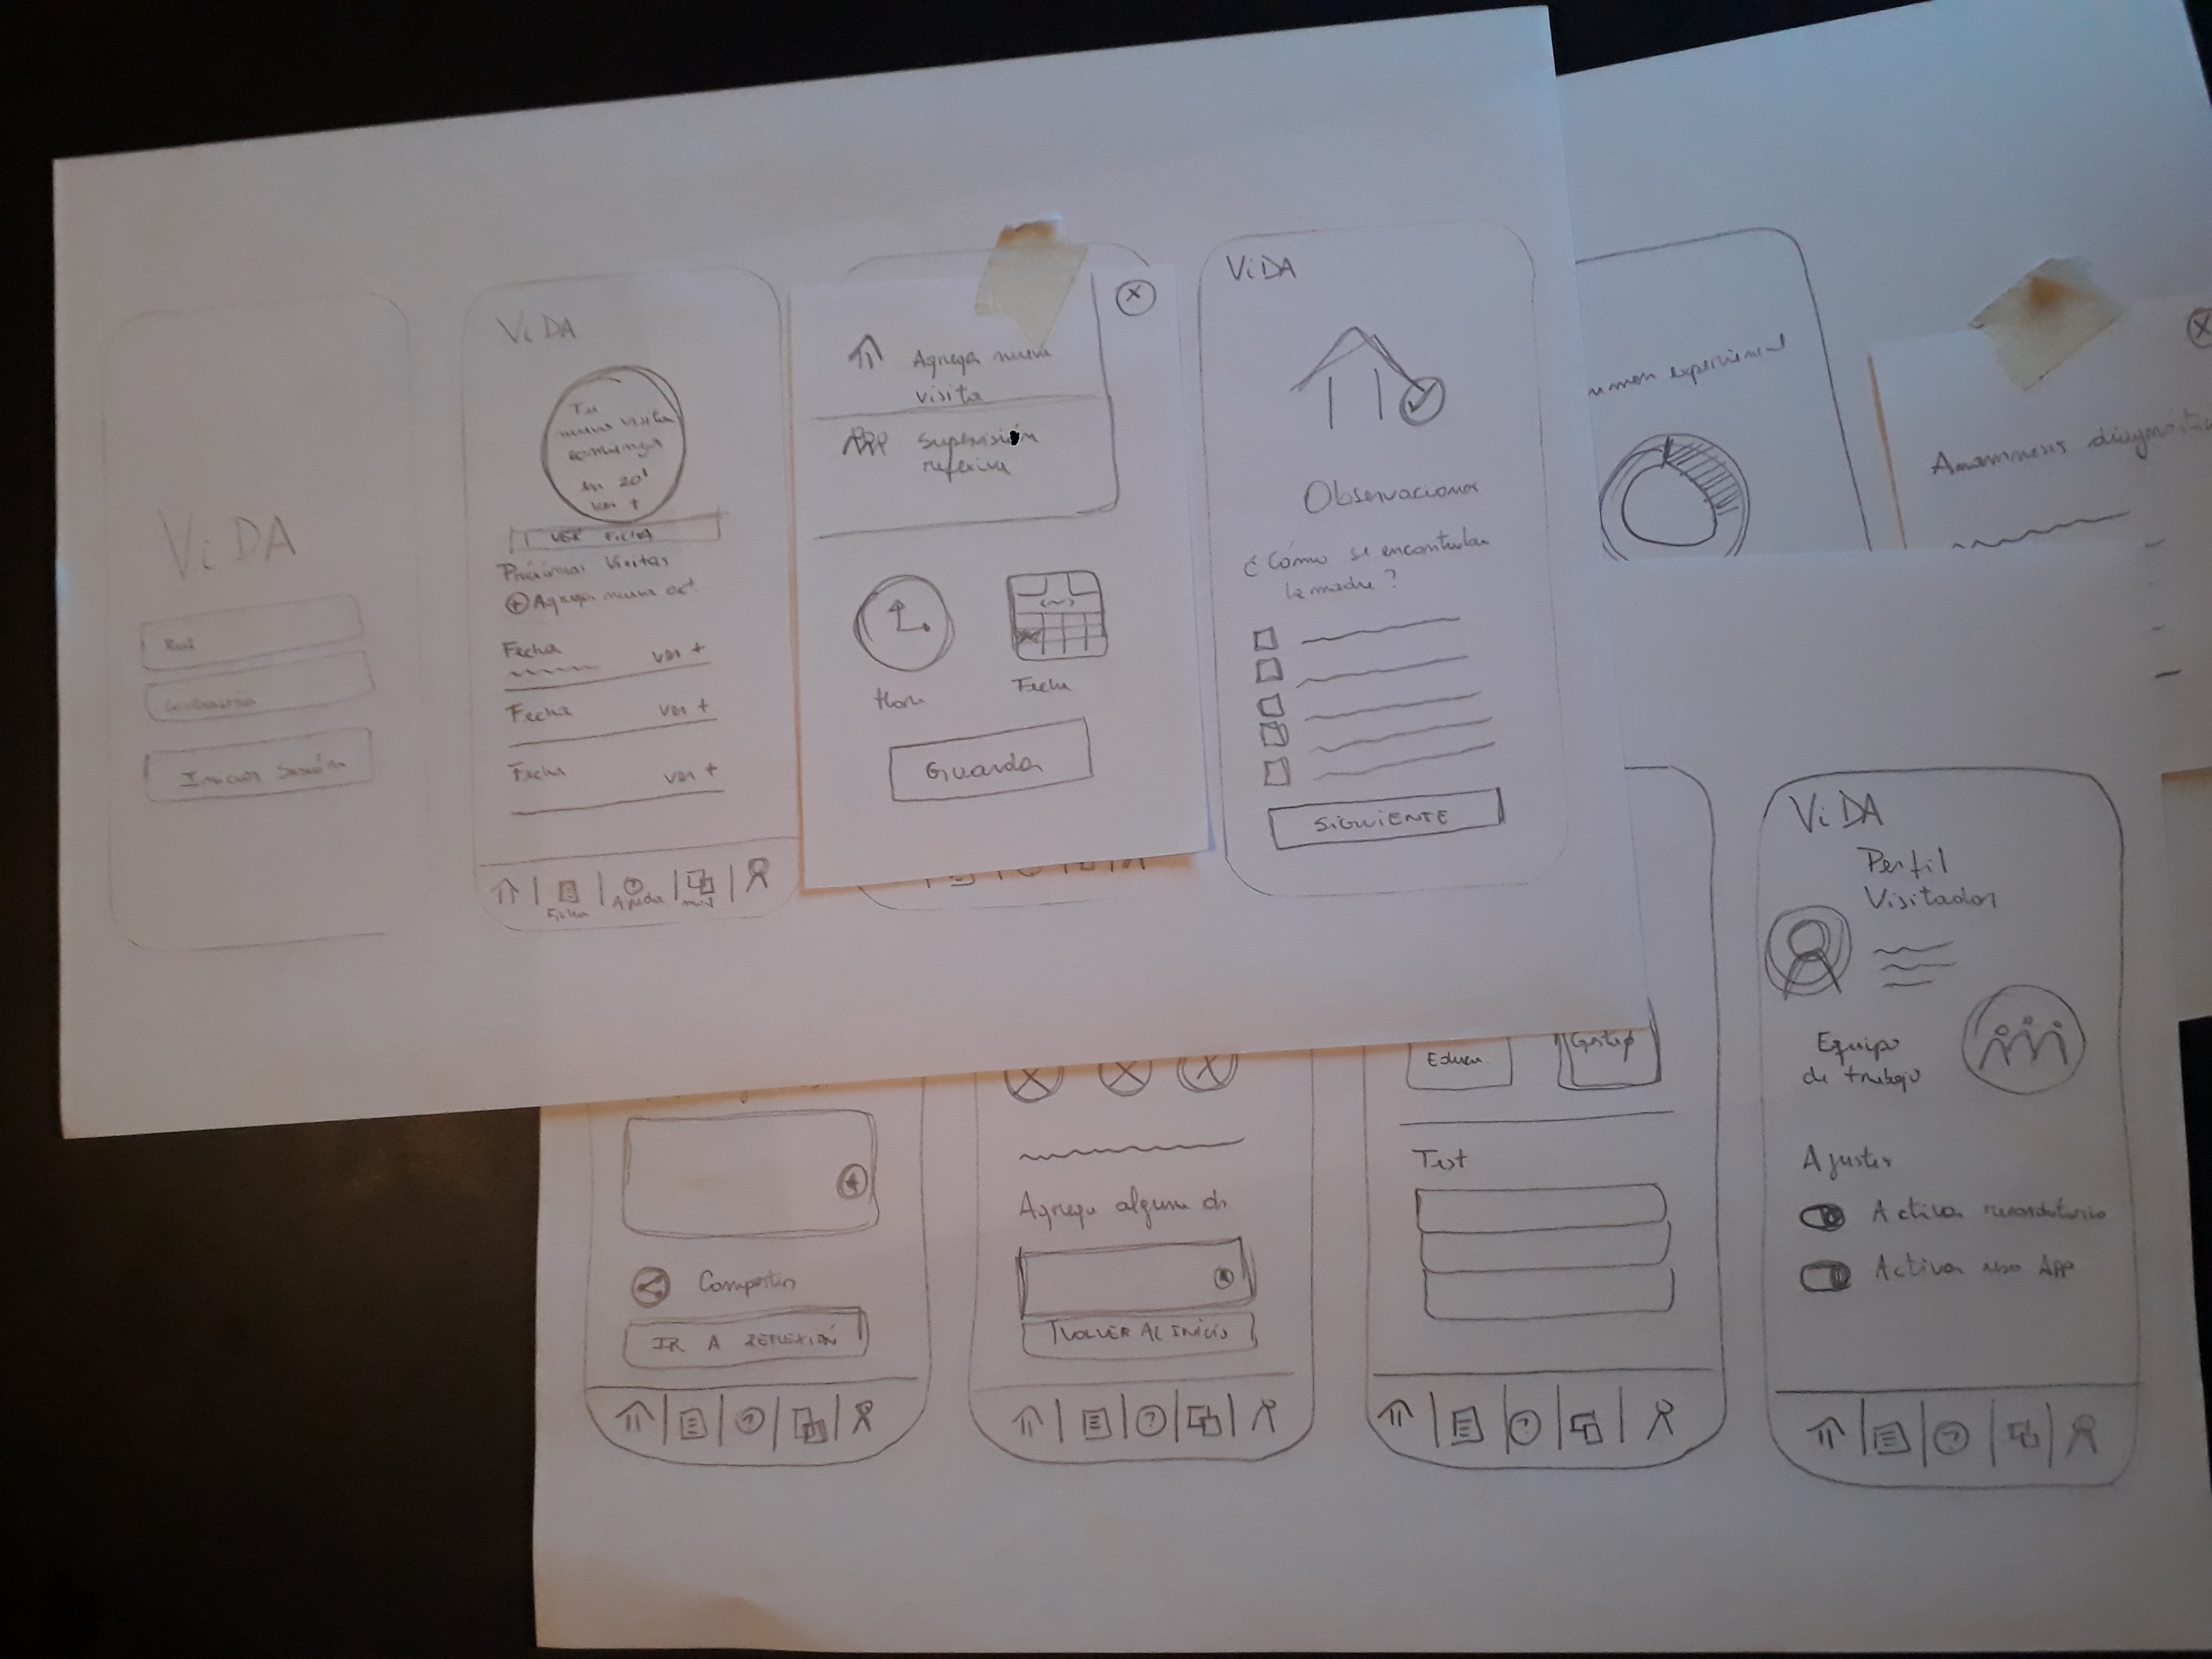 ViDA
Rut
Contraseña
Iniciar Sesión
ViDA
Tu
nueva visita
comienza
en 20'
ver +
VER FICHA
Próximas Visitas
Agrega nueva act.
Fecha
ver +
Fecha ver +
Fecha ver +
Ficha
Ayuda
Agrega nueva
visita
Supervisión
reflexiva
Hora
Fecha
Guardar
ViDA
Observaciones
¿Cómo se encontraba
la madre?
SiGUiENTE
experiencial
Anamnesis
Compartir
IR A REFLEXIÓN
Agrega alguna
VOLVER AL INICIO
Educa
Test
ViDA
Perfil
Visitador
Equipo
de trabajo
Ajustes
Activa recordatorio
Activa uso APP